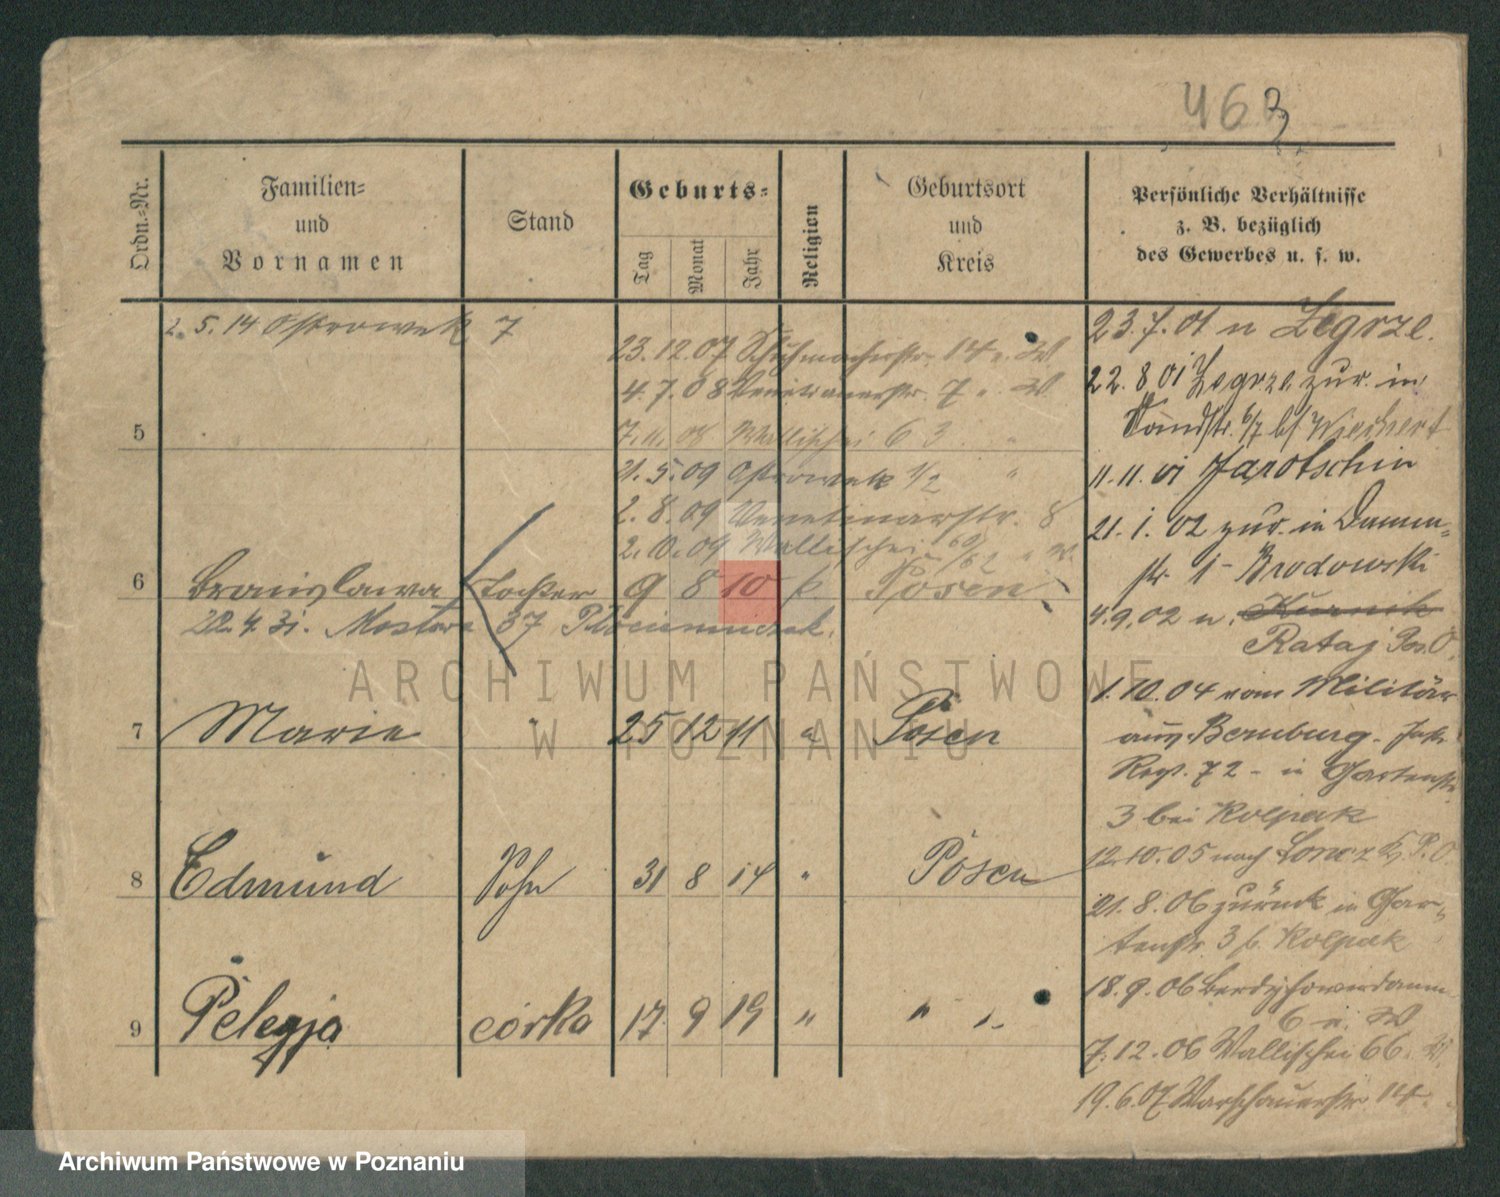 463
Ordn.-Nr.
Familien-
und
Vornamen
Stand
Geburts-
Tag
Monat
Jahr
Religion
Geburtsort
und
Kreis
Persönliche Verhältnisse
z. B. bezüglich
des Gewerbes u. s. w.
2. 5. 14 Ostrowek 7
23. 12. 07 Schuhmacherstr. 14 u. W
4. 7. 08 Venetianerstr. 7 " W
5
7. 11. 08 Wallischei 63 "
21. 5. 09 Ostrowek 1/2 "
2. 8. 09 Venetianerstr. 8
2. 10. 09 Wallischei
6 Bronislawa Tochter 9 8 10 k. Posen
22. 4. 31. Mostowa 37
7 Marie " 25 12 11 Posen
8 Edmund Sohn 31 8 14 " Posen
9 Pelegja córka 17 9 19 " " "
23. 7. 01 n Zegrze.
22. 8 01 Zegrze zur. in
Sandstr. 6/7 b/ Wiechert
11. 11. 01 Jarotschin
21. 1. 02 zur. in Damm-
str. 1 - Brodowski
4. 9. 02 n. Kurnik
Rataj Pos. O.
1. 10. 04 vom Militär
aus Bernburg - Inf.
Regt. 72 - in Gartenstr
3 bei Kolpak
12. 10. 05 nach P. O.
21. 8. 06 zurück in Gar-
tenstr. 3 b. Kolpak
18. 9. 06 Berdychowerdamm
6 u. W
7. 12. 06 Wallischei 66. W
19. 6. 07 Warschauerstr 14.
ARCHIWUM PAŃSTWOWE
W POZNANIU
Archiwum Państwowe w Poznaniu